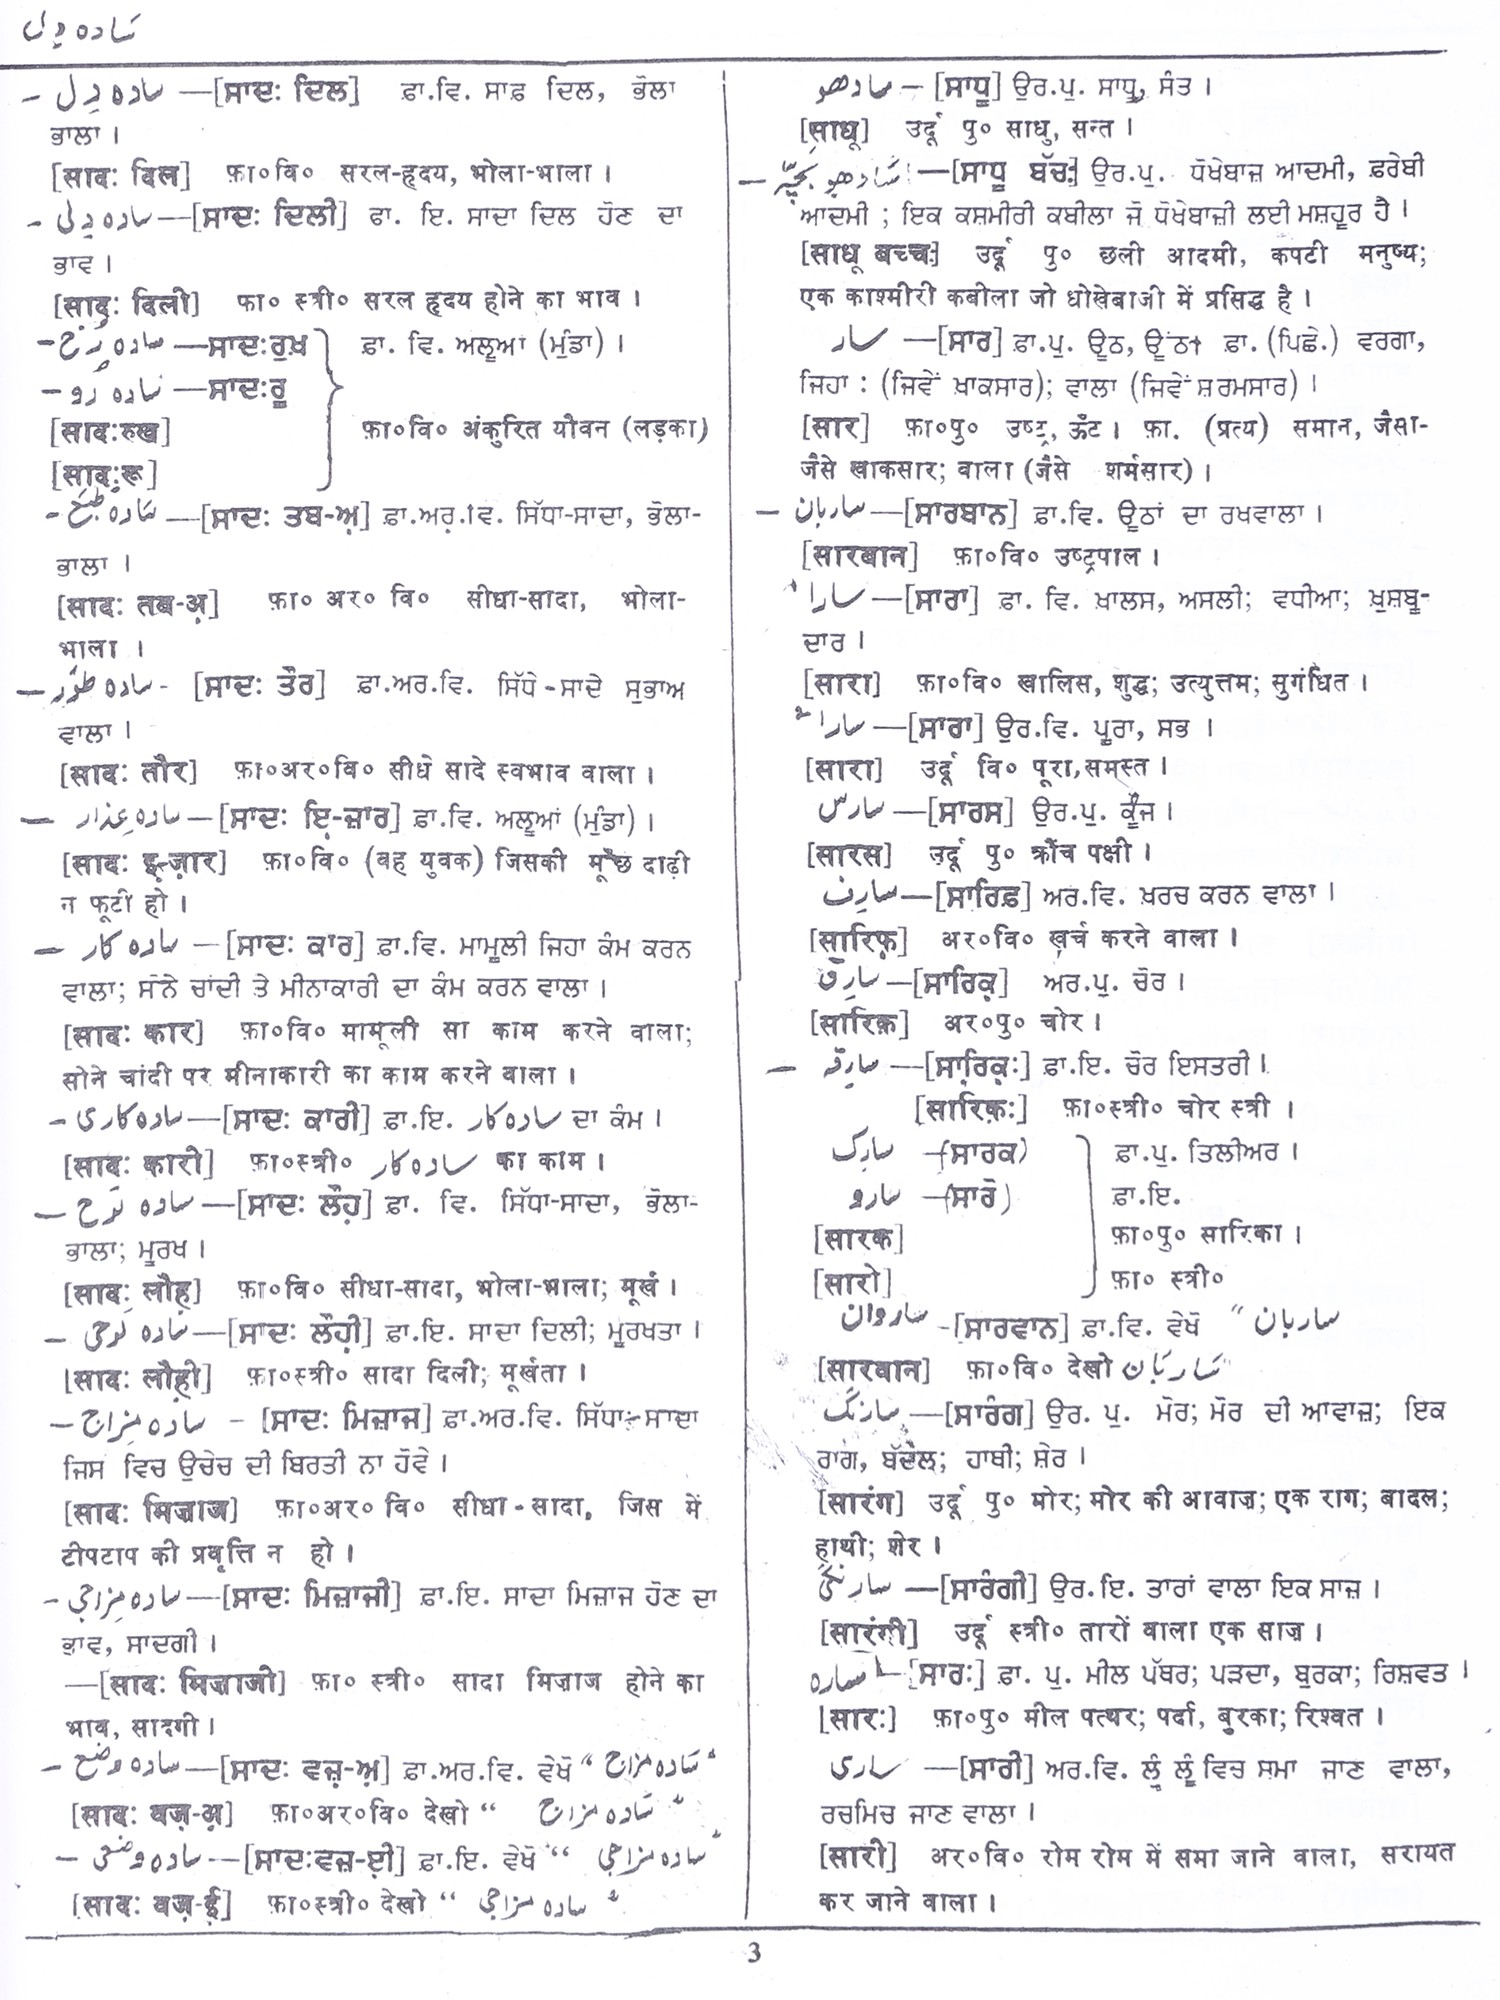 ساده دِلی
ساده دِل —[ਸਾਦਃ ਦਿਲ] ਫ਼ਾ.ਵਿ. ਸਾਫ਼ ਦਿਲ, ਭੋਲਾ
ਭਾਲਾ ।
[सादः दिल] फ़ा०वि० सरल-हृदय, भोला-भाला ।
ساده دِلی —[ਸਾਦਃ ਦਿਲੀ] ਫਾ. ਇ. ਸਾਦਾ ਦਿਲ ਹੋਣ ਦਾ
ਭਾਵ ।
[सादः दिली] फा० स्त्री० सरल हृदय होने का भाव ।
ساده رُخ —ਸਾਦਃਰੁਖ਼ ਫ਼ਾ. ਵਿ. ਅਲੂਆਂ (ਮੁੰਡਾ) ।
ساده رُو —ਸਾਦਃਰੂ
[सादःरुख] फ़ा०वि० अंकुरित यौवन (लड़का)
[सादःरू]
ساده طبع —[ਸਾਦਃ ਤਬ-ਅ਼] ਫ਼ਾ.ਅਰ.ਵਿ. ਸਿੱਧਾ-ਸਾਦਾ, ਭੋਲਾ-
ਭਾਲਾ ।
[सादः तब-अ़] फ़ा० अर० वि० सीधा-सादा, भोला-
भाला ।
ساده طَور - [ਸਾਦਃ ਤੌਰ] ਫ਼ਾ.ਅਰ.ਵਿ. ਸਿੱਧੇ-ਸਾਦੇ ਸੁਭਾਅ
ਵਾਲਾ ।
[सादः तौर] फ़ा०अर०वि० सीधे सादे स्वभाव वाला ।
ساده عِذار —[ਸਾਦਃ ਇ਼-ਜ਼ਾਰ] ਫ਼ਾ.ਵਿ. ਅਲੂਆਂ (ਮੁੰਡਾ) ।
[सादः इ़-ज़ार] फ़ा०वि० (वह युवक) जिसकी मूँछ दाढ़ी
न फूटी हो ।
ساده کار —[ਸਾਦਃ ਕਾਰ] ਫ਼ਾ.ਵਿ. ਮਾਮੂਲੀ ਜਿਹਾ ਕੰਮ ਕਰਨ
ਵਾਲਾ; ਸੋਨੇ ਚਾਂਦੀ ਤੇ ਮੀਨਾਕਾਰੀ ਦਾ ਕੰਮ ਕਰਨ ਵਾਲਾ ।
[सादः कार] फ़ा०वि० मामूली सा काम करने वाला;
सोने चांदी पर मीनाकारी का काम करने वाला ।
ساده کاری —[ਸਾਦਃ ਕਾਰੀ] ਫ਼ਾ.ਇ. ساده کار ਦਾ ਕੰਮ ।
[सादः कारी] फ़ा०स्त्री० ساده کار का काम ।
ساده لَوح —[ਸਾਦਃ ਲੌਹ਼] ਫ਼ਾ. ਵਿ. ਸਿੱਧਾ-ਸਾਦਾ, ਭੋਲਾ-
ਭਾਲਾ; ਮੂਰਖ ।
[सादः लौह़] फ़ा०वि० सीधा-सादा, भोला-भाला; मूर्ख ।
ساده لَوحی —[ਸਾਦਃ ਲੌਹ਼ੀ] ਫ਼ਾ.ਇ. ਸਾਦਾ ਦਿਲੀ; ਮੂਰਖਤਾ ।
[सादः लौह़ी] फ़ा०स्त्री० सादा दिली; मूर्खता ।
ساده مِزاج - [ਸਾਦਃ ਮਿਜ਼ਾਜ] ਫ਼ਾ.ਅਰ.ਵਿ. ਸਿੱਧਾ-ਸਾਦਾ
ਜਿਸ ਵਿਚ ਉਚੇਚ ਦੀ ਬਿਰਤੀ ਨਾ ਹੋਵੇ ।
[सादः मिज़ाज] फ़ा०अर० वि० सीधा-सादा, जिस में
टीपटाप की प्रवृत्ति न हो ।
ساده مِزاجی —[ਸਾਦਃ ਮਿਜ਼ਾਜੀ] ਫ਼ਾ.ਇ. ਸਾਦਾ ਮਿਜ਼ਾਜ ਹੋਣ ਦਾ
ਭਾਵ, ਸਾਦਗੀ ।
—[सादः मिज़ाजी] फ़ा० स्त्री० सादा मिज़ाज होने का
भाव, सादगी ।
ساده وضع —[ਸਾਦਃ ਵਜ਼-ਅ਼] ਫ਼ਾ.ਅਰ.ਵਿ. ਵੇਖੋ “ساده مزاج”
[सादः वज़-अ़] फ़ा०अर०वि० देखो “ساده مزاج”
ساده وضعی —[ਸਾਦਃਵਜ਼-ਈ਼] ਫ਼ਾ.ਇ. ਵੇਖੋ “ساده مزاجی”
[सादः वज़-ई़] फ़ा०स्त्री० देखो “ساده مزاجی”
سادھو — [ਸਾਧੂ] ਉਰ.ਪੁ. ਸਾਧੂ, ਸੰਤ ।
[साधू] उर्दू पु० साधु, सन्त ।
سادھو بچّہ —[ਸਾਧੂ ਬੱਚਃ] ਉਰ.ਪੁ. ਧੋਖੇਬਾਜ਼ ਆਦਮੀ, ਫ਼ਰੇਬੀ
ਆਦਮੀ ; ਇਕ ਕਸ਼ਮੀਰੀ ਕਬੀਲਾ ਜੋ ਧੋਖੇਬਾਜ਼ੀ ਲਈ ਮਸ਼ਹੂਰ ਹੈ ।
[साधू बच्चः] उर्दू पु० छली आदमी, कपटी मनुष्य;
एक काश्मीरी कबीला जो धोखेबाजी में प्रसिद्ध है ।
سار —[ਸਾਰ] ਫ਼ਾ.ਪੁ. ਊਠ, ਊਂਠ। ਫ਼ਾ. (ਪਿਛੇ.) ਵਰਗਾ,
ਜਿਹਾ : (ਜਿਵੇਂ ਖ਼ਾਕਸਾਰ); ਵਾਲਾ (ਜਿਵੇਂ ਸ਼ਰਮਸਾਰ) ।
[सार] फ़ा०पु० उष्ट्र, ऊँट । फ़ा. (प्रत्य) समान, जैसा-
जैसे खाकसार; वाला (जैसे शर्मसार) ।
ساربان —[ਸਾਰਬਾਨ] ਫ਼ਾ.ਵਿ. ਊਠਾਂ ਦਾ ਰਖਵਾਲਾ ।
[सारबान] फ़ा०वि० उष्ट्रपाल ।
سارا —[ਸਾਰਾ] ਫ਼ਾ. ਵਿ. ਖ਼ਾਲਸ, ਅਸਲੀ; ਵਧੀਆ; ਖ਼ੁਸ਼ਬੂ-
ਦਾਰ ।
[सारा] फ़ा०वि० खालिस, शुद्ध; उत्युत्तम; सुगंधित ।
سارا —[ਸਾਰਾ] ਉਰ.ਵਿ. ਪੂਰਾ, ਸਭ ।
[सारा] उर्दू वि० पूरा,समस्त ।
سارس —[ਸਾਰਸ] ਉਰ.ਪੁ. ਕੂੰਜ ।
[सारस] उर्दू पु० क्रौंच पक्षी ।
سارِف —[ਸਾਰਿਫ਼] ਅਰ.ਵਿ. ਖ਼ਰਚ ਕਰਨ ਵਾਲਾ ।
[सारिफ़] अर०वि० ख़र्च करने वाला ।
سارِق —[ਸਾਰਿਕ਼] ਅਰ.ਪੁ. ਚੋਰ ।
[सारिक़] अर०पु० चोर ।
سارِقہ —[ਸਾਰਿਕ਼ਃ] ਫ਼ਾ.ਇ. ਚੋਰ ਇਸਤਰੀ ।
[सारिक़ः] फ़ा०स्त्री० चोर स्त्री ।
سارک —(ਸਾਰਕ) ਫ਼ਾ.ਪੁ. ਤਿਲੀਅਰ ।
سارو —(ਸਾਰੋ) ਫ਼ਾ.ਇ.
[सारक] फ़ा०पु० सारिका ।
[सारो] फ़ा० स्त्री०
ساروان -[ਸਾਰਵਾਨ] ਫ਼ਾ.ਵਿ. ਵੇਖੋ “ساربان
[सारवान] फ़ा०वि० देखो ساربان
سارنگ —[ਸਾਰੰਗ] ਉਰ. ਪੁ. ਮੋਰ; ਮੋਰ ਦੀ ਆਵਾਜ਼; ਇਕ
ਰਾਗ, ਬੱਦਲ; ਹਾਥੀ; ਸ਼ੇਰ ।
[सारंग] उर्दू पु० मोर; मोर की आवाज़; एक राग; बादल;
हाथी; शेर ।
سارنگی —[ਸਾਰੰਗੀ] ਉਰ.ਇ. ਤਾਰਾਂ ਵਾਲਾ ਇਕ ਸਾਜ਼ ।
[सारंगी] उर्दू स्त्री० तारों वाला एक साज़ ।
سارہ —[ਸਾਰਃ] ਫ਼ਾ. ਪੁ. ਮੀਲ ਪੱਥਰ; ਪੜਦਾ, ਬੁਰਕਾ; ਰਿਸ਼ਵਤ ।
[सारः] फ़ा०पु० मील पत्थर; पर्दा, बुरका; रिश्वत ।
ساری —[ਸਾਰੀ] ਅਰ.ਵਿ. ਲੂੰ ਲੂੰ ਵਿਚ ਸਮਾ ਜਾਣ ਵਾਲਾ,
ਰਚਮਿਚ ਜਾਣ ਵਾਲਾ ।
[सारी] अर०वि० रोम रोम में समा जाने वाला, सरायत
कर जाने वाला ।
3